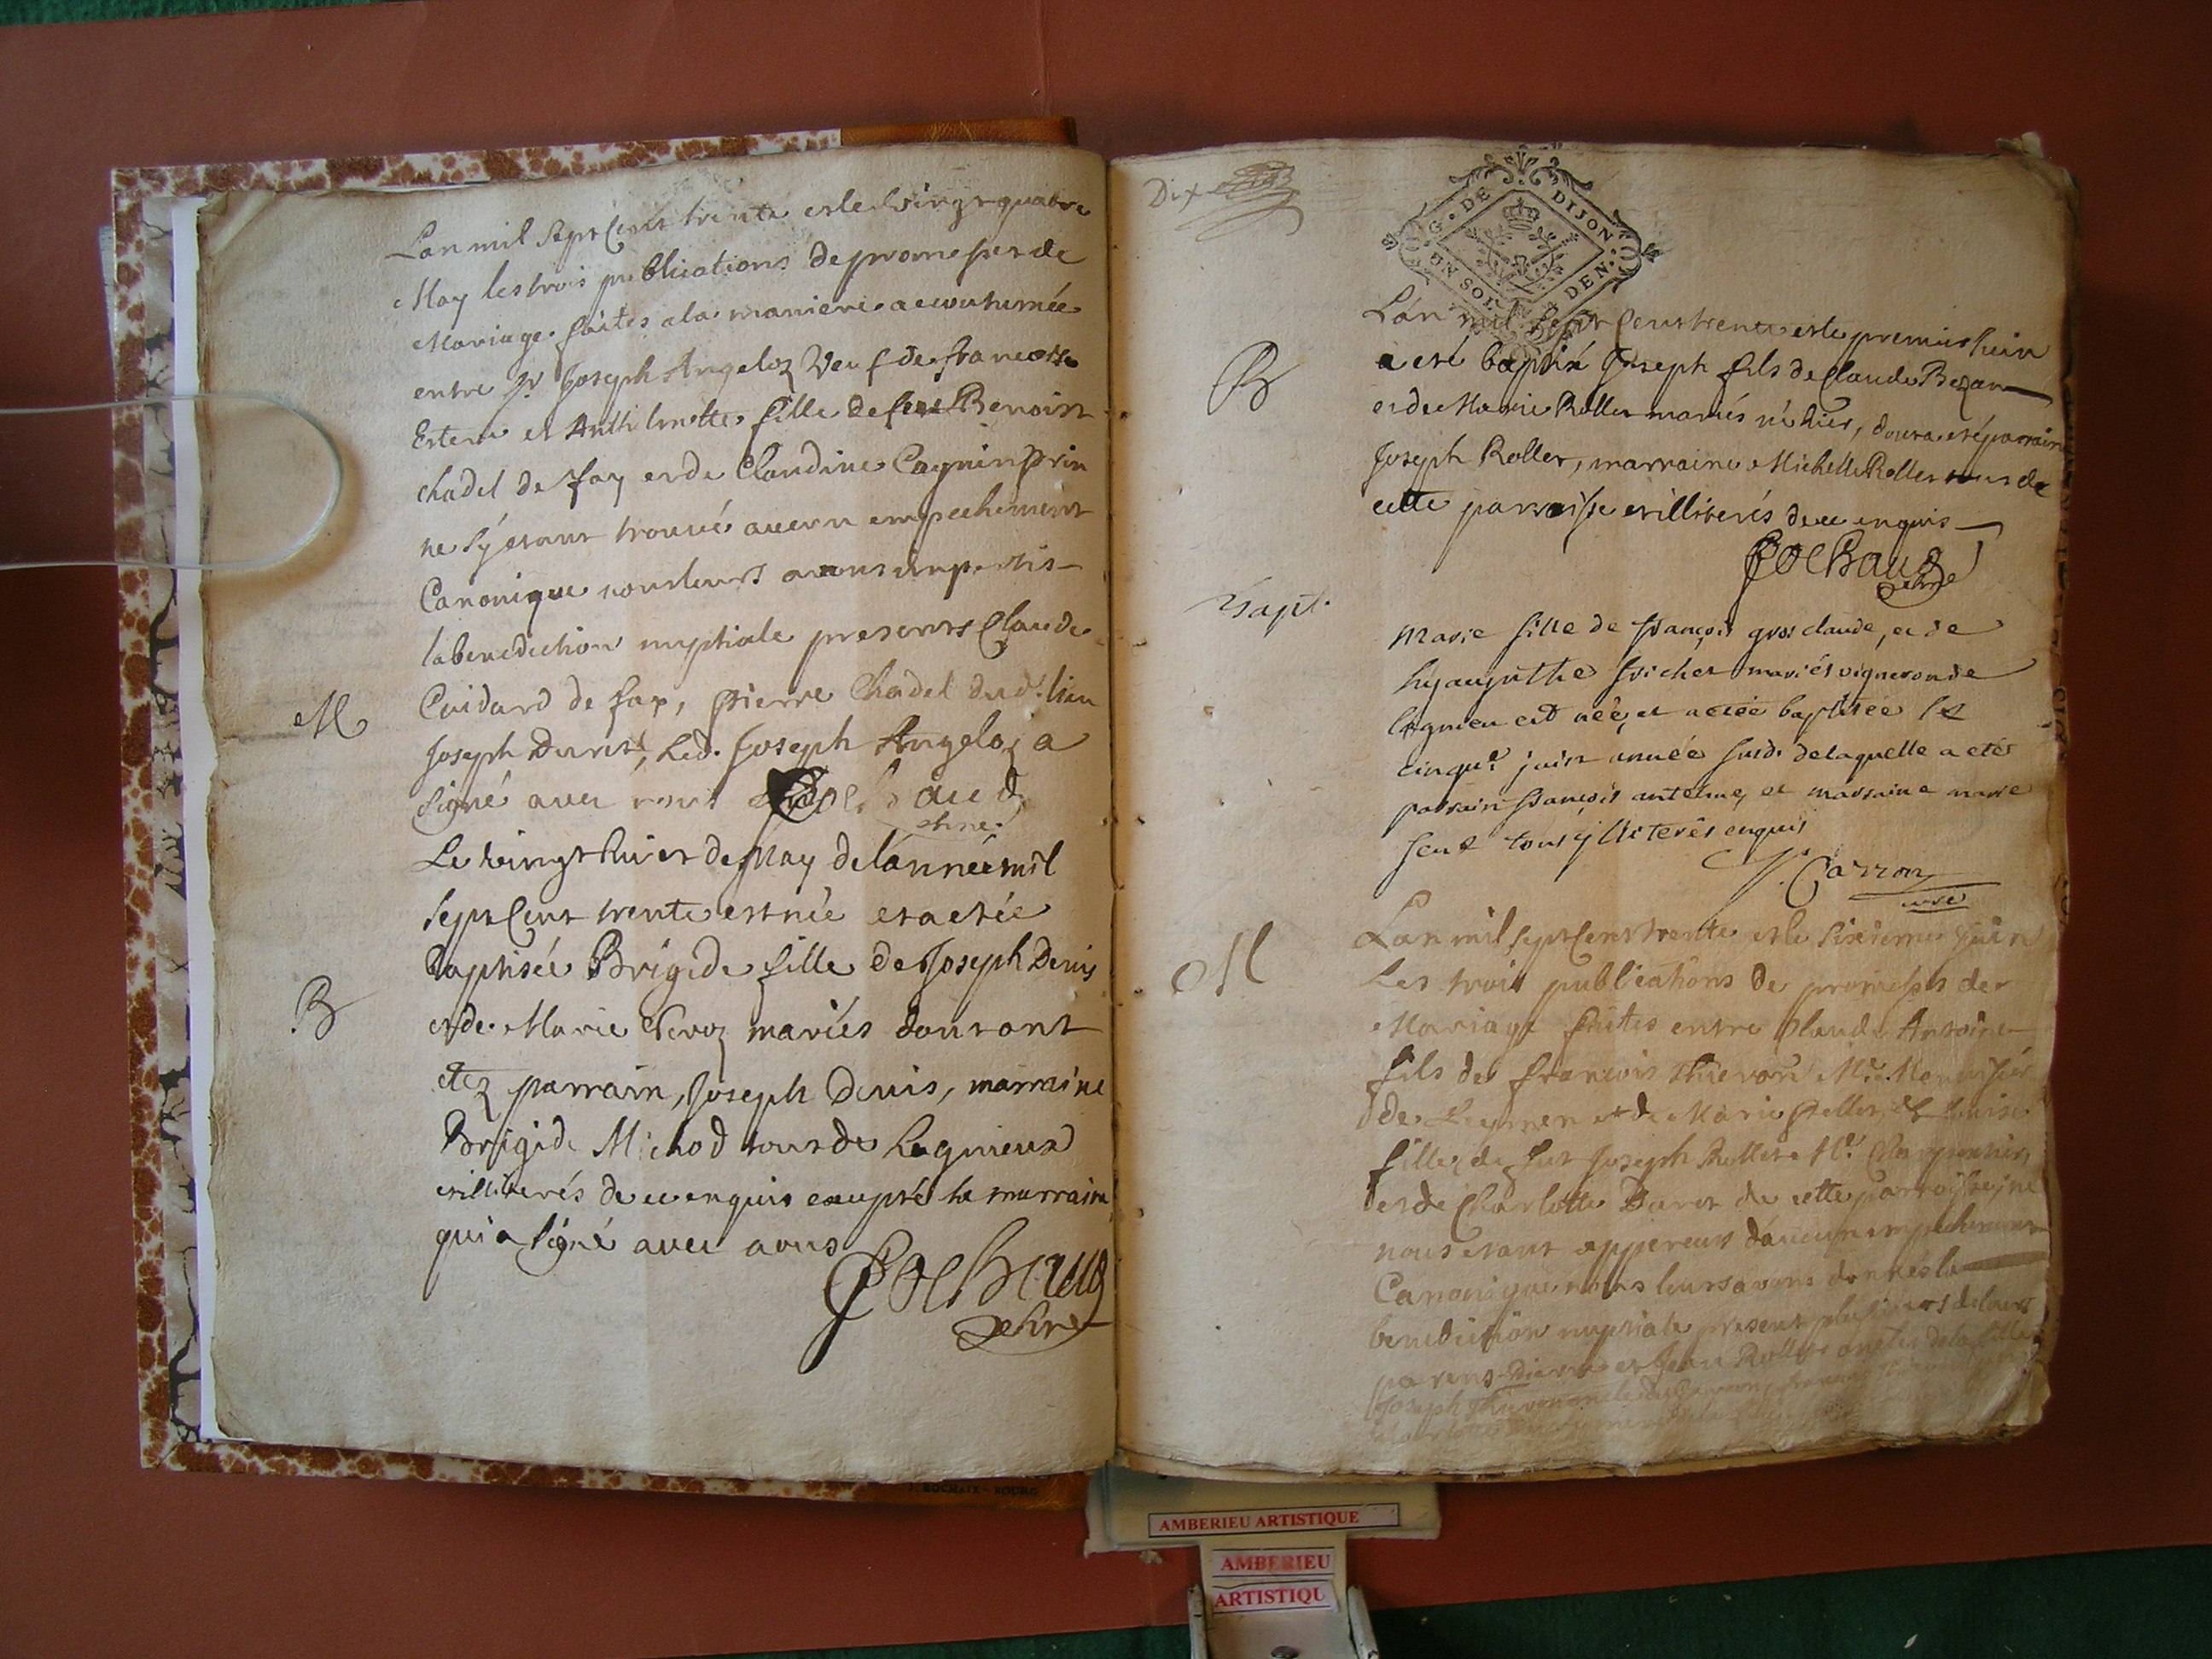 Lan mil sept Cent trente et le vingt quatre
May les trois publications de promesses de
Mariage faites a la maniere accoutumée
entre Sr Joseph Angeloz Veuf de francoise
Estene et Anthelmette fille de feu Benoist
chadel de fay et de Claudine Cagnin
ne s'y etant trouvé aucun empechement
Canonique nous leurs avons impartis
la benediction nuptiale presents Claude
Cuidard de fay, pierre Chadel dud. lieu
M
Joseph Dunis, Led. Joseph Angeloz a
signé avec nous Cochaud
Le vingt huict de May de l'année mil
sept Cent trente est née et a etée
baptisée Brigide fille de Joseph Denis
B
et de Marie Peroz mariés dont ont
etez parrain, Joseph Denis, marraine
Brigide Michod tous de Lagnieux
et illiterés de ce enquis excepté la marraine
qui a signé avec nous
Cochaud
Dix
G. DE DIJON
UN SOL DEN.
Lan mil sept Cent trente et le premier Juin
a eté baptisé Joseph fils de Claude Bezan
B
et de Marie Rollet mariés né hier, dont a eté parrain
Joseph Rollet, marraine Michelle Rollet tous de
cette parroisse et illiterés de ce enquis
Cochaud
Bapt.
Marie fille de françois gros claude, et de
hyacynthe frichet mariés vigneron de
lagnieu est née, et a etée baptisée le
cinque. juin année susd. de laquelle a etés
parrain françois antelme, et marraine marie
tous illiterés enquis
Carron
curé
Lan mil sept Cent trente et le sixieme Juin
M
Les trois publications de promesses de
Mariage faites entre Claude Antoine
fils de francois Thievon Me. Menuisier
de Leymen et de Marie et Louise
fille de feu Joseph Rollet Me. Charpentier
et de Charlotte de cette parroisse, ne
nous etant apperceus d'aucun empechement
Canonique nous leurs avons données la
benediction nuptiale present plusieurs de leurs
parens Pierre et Jean Rollet oncles de la fille
Joseph Thievon
J. ROCHAIX - BOURG
AMBERIEU ARTISTIQUE
AMBERIEU
ARTISTIQU